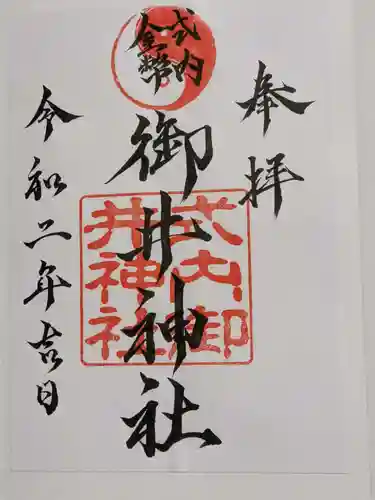 奉拝
式内
金幣
御井神社
式内御
井神社
令和二年吉日